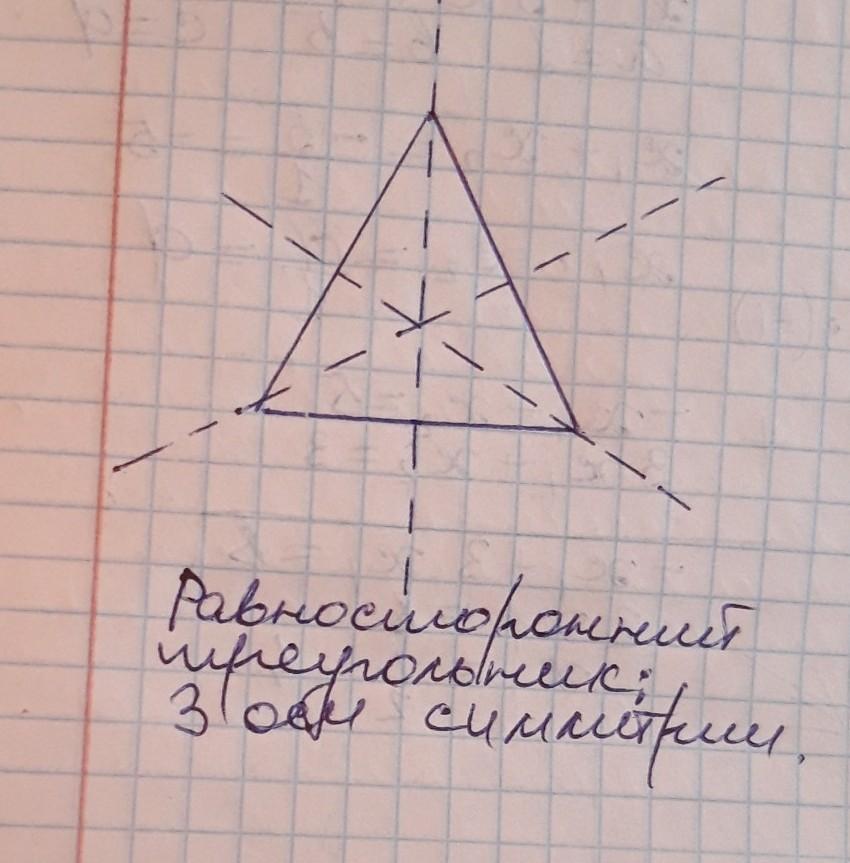 Равносторонний
треугольник;
3 оси симметрии.